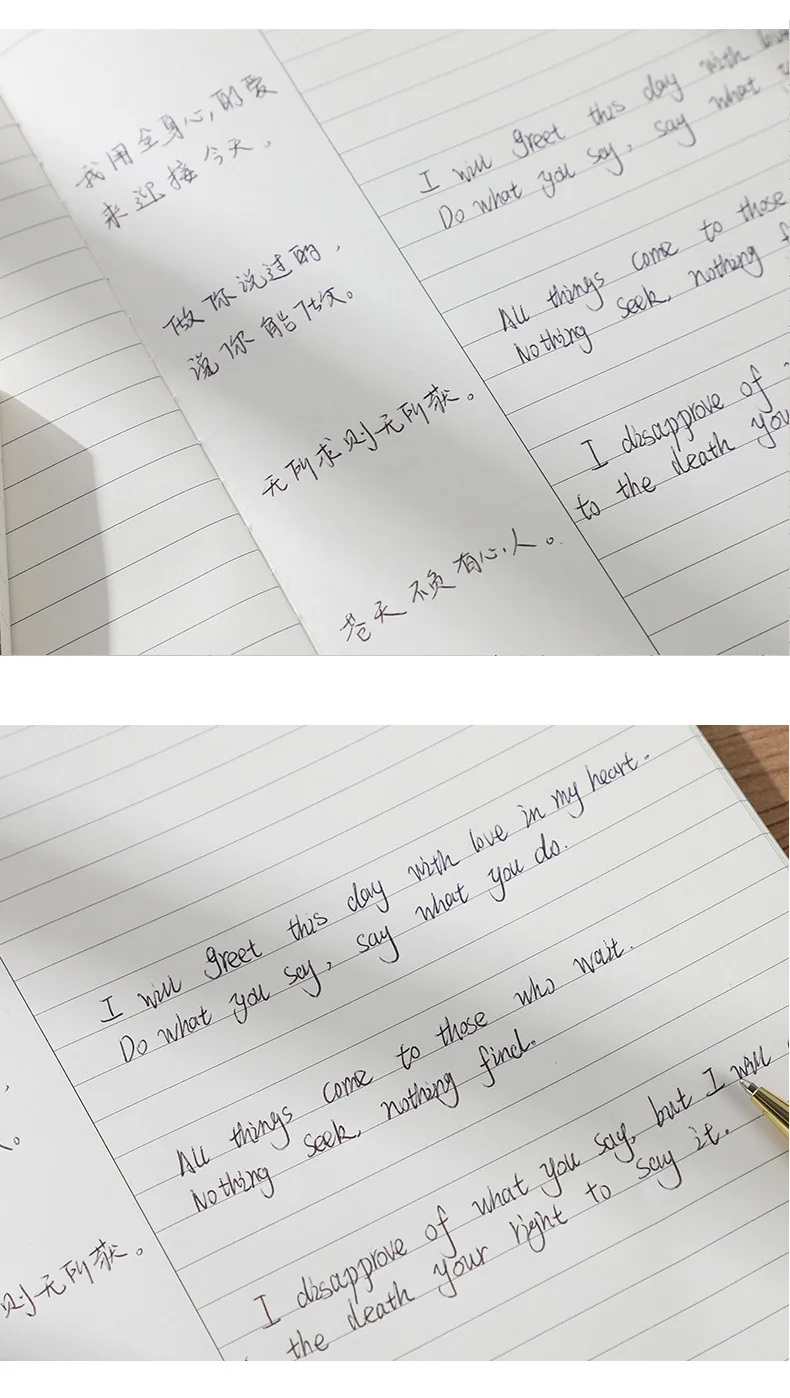 我用全身心的爱
来迎接今天。
做你说过的,
说你能做。
无所求则无所获。
苍天不负有心人。
I will greet this day with
Do what you say, say what
All things come to those
Nothing seek, nothing
I disapprove of
to the death you
I will greet this day with love in my heart.
Do what you say, say what you do.
All things come to those who wait.
Nothing seek, nothing find.
I disapprove of what you say, but I will
the death your right to say it.
则无所获。